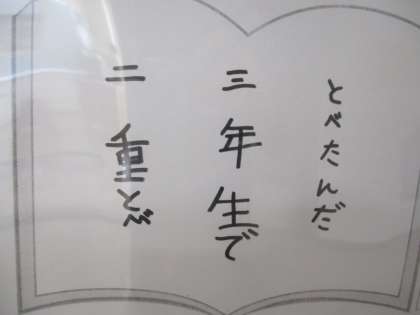 とべたんだ
三年生で
二重とび